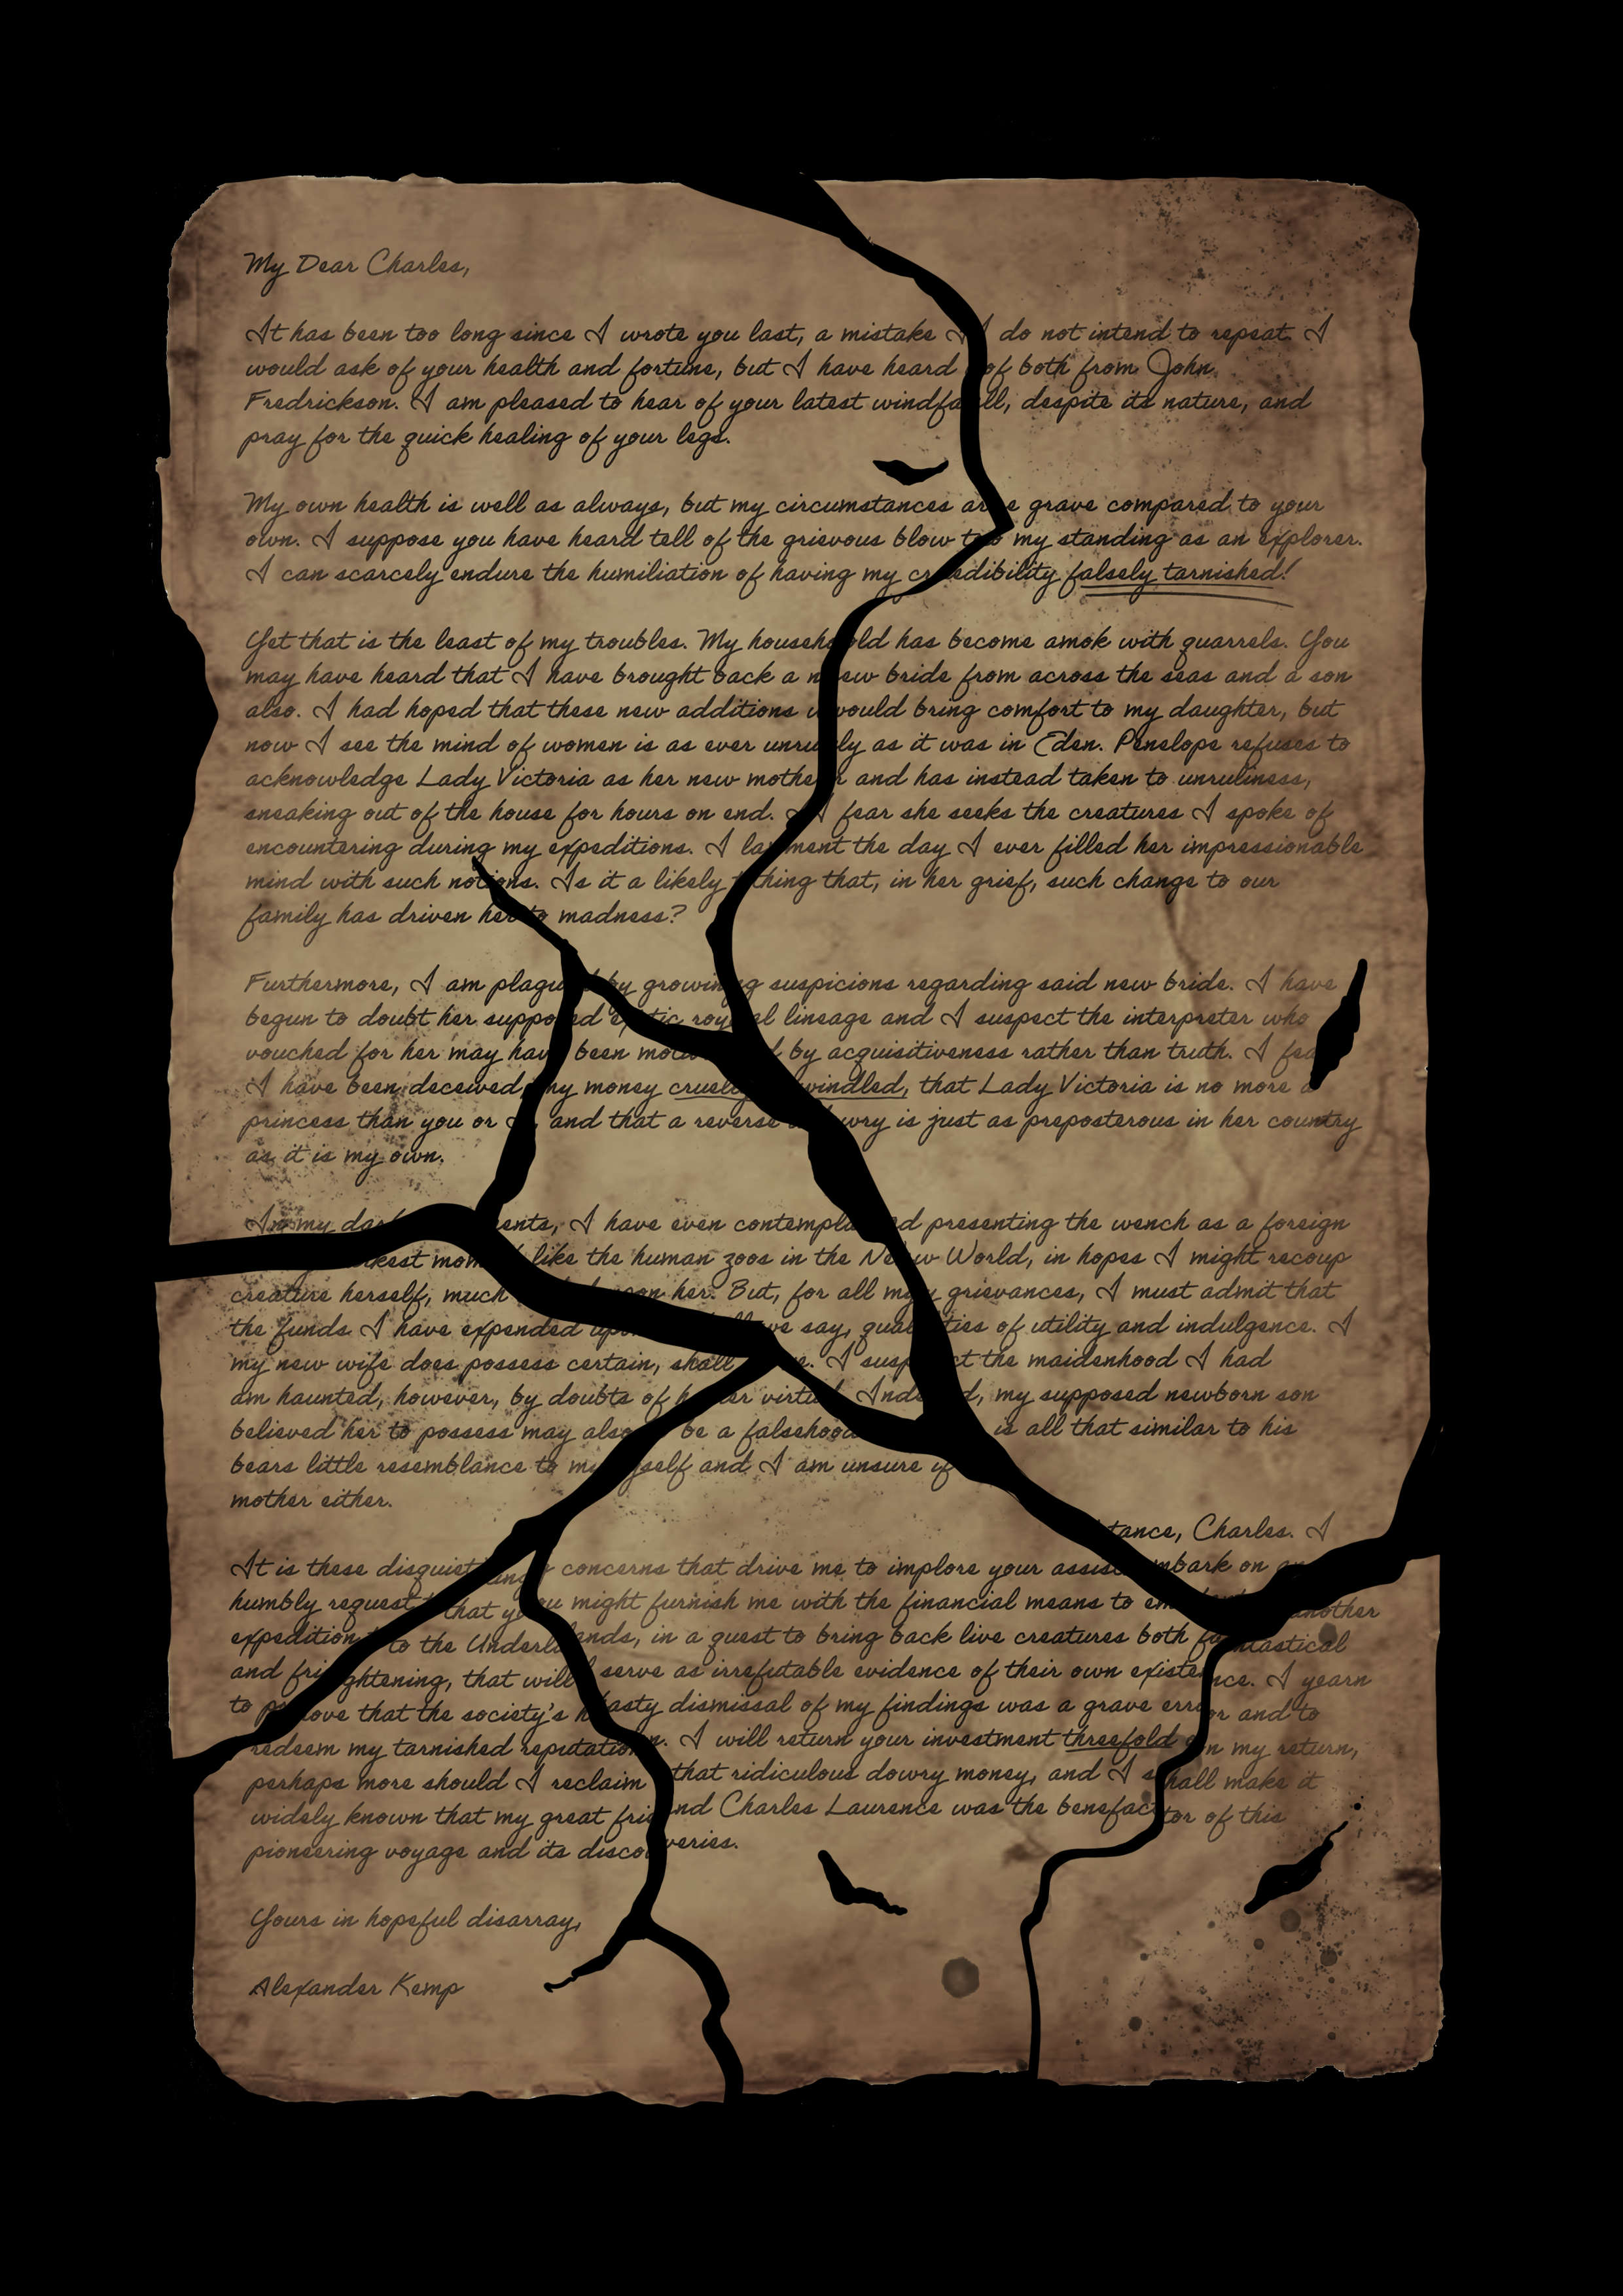 My Dear Charles,
It has been too long since I wrote you last, a mistake I do not intend to repeat. I
would ask of your health and fortune, but I have heard of both from John
Fredrickson. I am pleased to hear of your latest windfall, despite its nature, and
pray for the quick healing of your legs.
My own health is well as always, but my circumstances are grave compared to your
own. I suppose you have heard tell of the grievous blow to my standing as an explorer.
I can scarcely endure the humiliation of having my credibility falsely tarnished!
Yet that is the least of my troubles. My household has become amok with quarrels. You
may have heard that I have brought back a new bride from across the seas and a son
also. I had hoped that these new additions would bring comfort to my daughter, but
now I see the mind of women is as ever unruly as it was in Eden. Penelope refuses to
acknowledge Lady Victoria as her new mother and has instead taken to unruliness,
sneaking out of the house for hours on end. I fear she seeks the creatures I spoke of
encountering during my expeditions. I lament the day I ever filled her impressionable
mind with such notions. Is it a likely thing that, in her grief, such change to our
family has driven her to madness?
Furthermore, I am plagued by growing suspicions regarding said new bride. I have
begun to doubt her supposed exotic royal lineage and I suspect the interpreter who
vouched for her may have been motivated by acquisitiveness rather than truth. I fear
I have been deceived, my money cruelly swindled, that Lady Victoria is no more a
princess than you or I, and that a reverse dowry is just as preposterous in her country
as it is my own.
In my darkest moments, I have even contemplated presenting the wench as a foreign
creature herself, much like the human zoos in the New World, in hopes I might recoup
the funds I have expended upon her. But, for all my grievances, I must admit that
my new wife does possess certain, shall we say, qualities of utility and indulgence. I
am haunted, however, by doubts of her virtue. I suspect the maidenhood I had
believed her to possess may also be a falsehood. Indeed, my supposed newborn son
bears little resemblance to myself and I am unsure if is all that similar to his
mother either.
It is these disquieting concerns that drive me to implore your assistance, Charles. I
humbly request that you might furnish me with the financial means to embark on another
expedition to the Underlands, in a quest to bring back live creatures both fantastical
and frightening, that will serve as irrefutable evidence of their own existence. I yearn
to prove that the society's hasty dismissal of my findings was a grave error and to
redeem my tarnished reputation. I will return your investment threefold on my return,
perhaps more should I reclaim that ridiculous dowry money, and I shall make it
widely known that my great friend Charles Laurence was the benefactor of this
pioneering voyage and its discoveries.
Yours in hopeful disarray,
Alexander Kemp